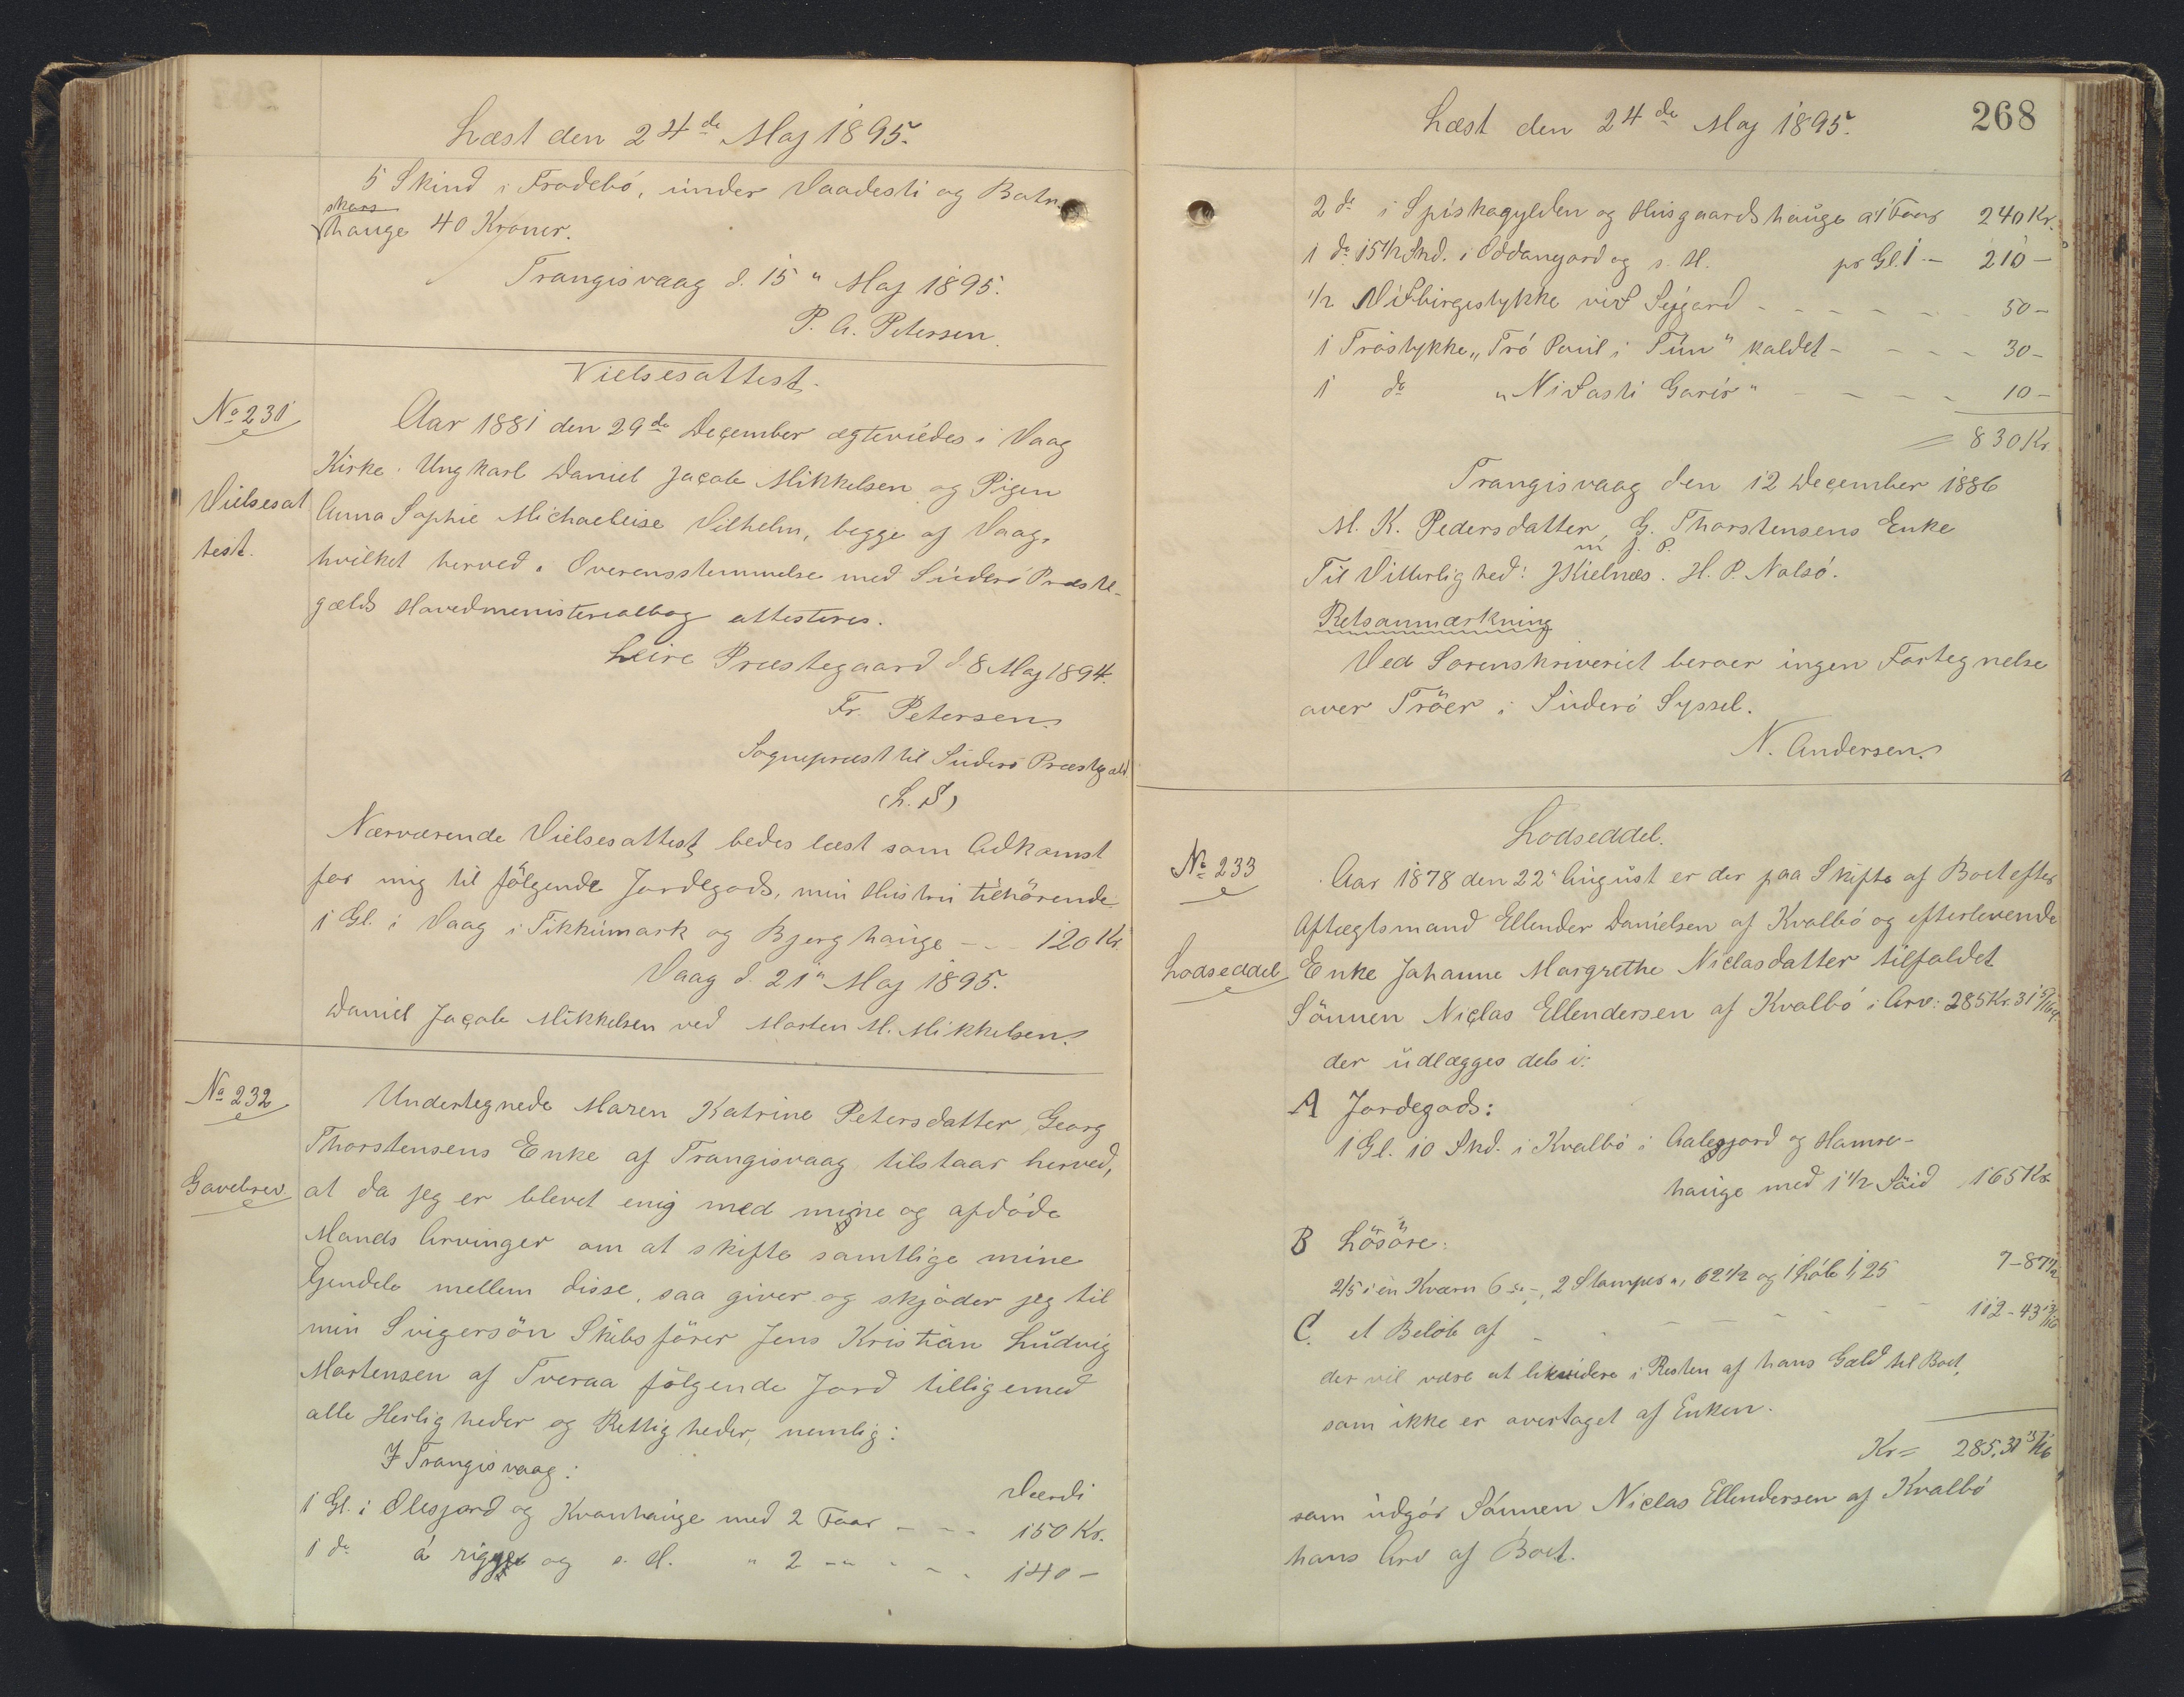 Læst den 24de Maj 1895.
5 Skind i Fradebó, under Vaadesti og Batn
skors
hauge 40 Kroner.
Trangisvaag d. 15" Maj 1895.
P. A. Petersen.
Vielsesattest.
No 231
Vielsesat
test.
Aar 1881 den 29de December ægteviedes i Vaag
Kirke: Ungkarl Daniel Jacob Mikkelsen og Pigen
Anna Sophie Michaeleise Vilhelm, begge af Vaag,
hvilket herved i Overensstemmelse med Süderö Præste-
gælds Hovedministerialbog attesteres.
Leire Præstegaard d. 8 Maj 1894.
Fr. Petersen.
Sognepræst til Süderö Præstegæld
(L. S)
Nærværende Vielsesattest bedes læst som Adkomst
for mig til fölgende Jordegods, min Hustru tilhörende
1 Gl. i Vaag i Tikkumark og Bjerg hauge - - - 120 Kr.
Vaag d. 21" Maj 1895.
Daniel Jacob Mikkelsen ved Morten M. Mikkelsen.
No 232
Gavebrev
Undertegnede Maren Katrine Petersdatter, Georg
Thorstensens Enke af Trangisvaag tilstaar herved,
at da jeg er blevet enig med mine og afdöde
Mands Arvinger om at skifte samtlige mine
Ejendele mellem disse, saa giver og skjöder jeg til
min Svigersön Skibsförer Jens Kristian Ludvig
Mortensen af Tveraa fölgende Jord tilligemed
alle Herligheder og Rettigheder, nemlig:
I Trangisvaag:
Værdi
1 Gl. i Olesjord og Kvanhauge med 2 Faar - - - 150 Kr.
1 do á rigge og s. H. " 2 -"- - - - 140 -
268
Læst den 24de Maj 1895.
2 do i Spiskagylden og Husgaards hauge a 1 Faar 240 Kr.
1 do 15 1/2 Skd. i Oddangard og s. H. pr Gl. 1 - 210 -
1/2 Viðbirgestykke við Sejgard - - - - - - 50 -
1 Tröstykke "Trö Poul i Tún" kaldet - - - - 30 -
1 do "Niðasti Garðr" - - - - 10 -
= 830 Kr
Trangisvaag den 12 December 1886
M. K. Pedersdatter, G. Thorstensens Enke
m. f. P.
Til Vitterlighed: J Kielnæs. H. P. Nolsó.
Retsanmærkning
Ved Sorenskriveriet beroer ingen Fortegnelse
over Tröer i Süderö Syssel.
N. Andersen.
Lodseddel.
No 233
Lodseddel
Aar 1878 den 22" August er der paa Skifte af Boet efter
Aftægtsmand Ellender Danielsen af Kvalbö og efterlevende
Enke Johanne Margrethe Niclasdatter tilfaldet
Sönnen Niclas Ellendersen af Kvalbö i Arv: 285 Kr. 31 5/16 Ø.
der udlægges dels i:
A Jordegods:
1 Gl. 10 Skd. i Kvalbö i Aalegjord og Hamre-
hauge med 1 1/2 Såid 165 Kr.
B Lösöre:
2/5 i en Kværn 6 -"-, 2 Stamper ", 62 1/2 og 1 Löb 1,25 7-87 1/2
C. et Belöb af - - - - - - - 112-43 13/16
der vil være at likvidere i Resten af hans Gæld til Boet,
som ikke er overtaget af Enken.
Kr = 285,31 5/16
som udgör Sönnen Niclas Ellendersen af Kvalbö
hans Arv af Boet.